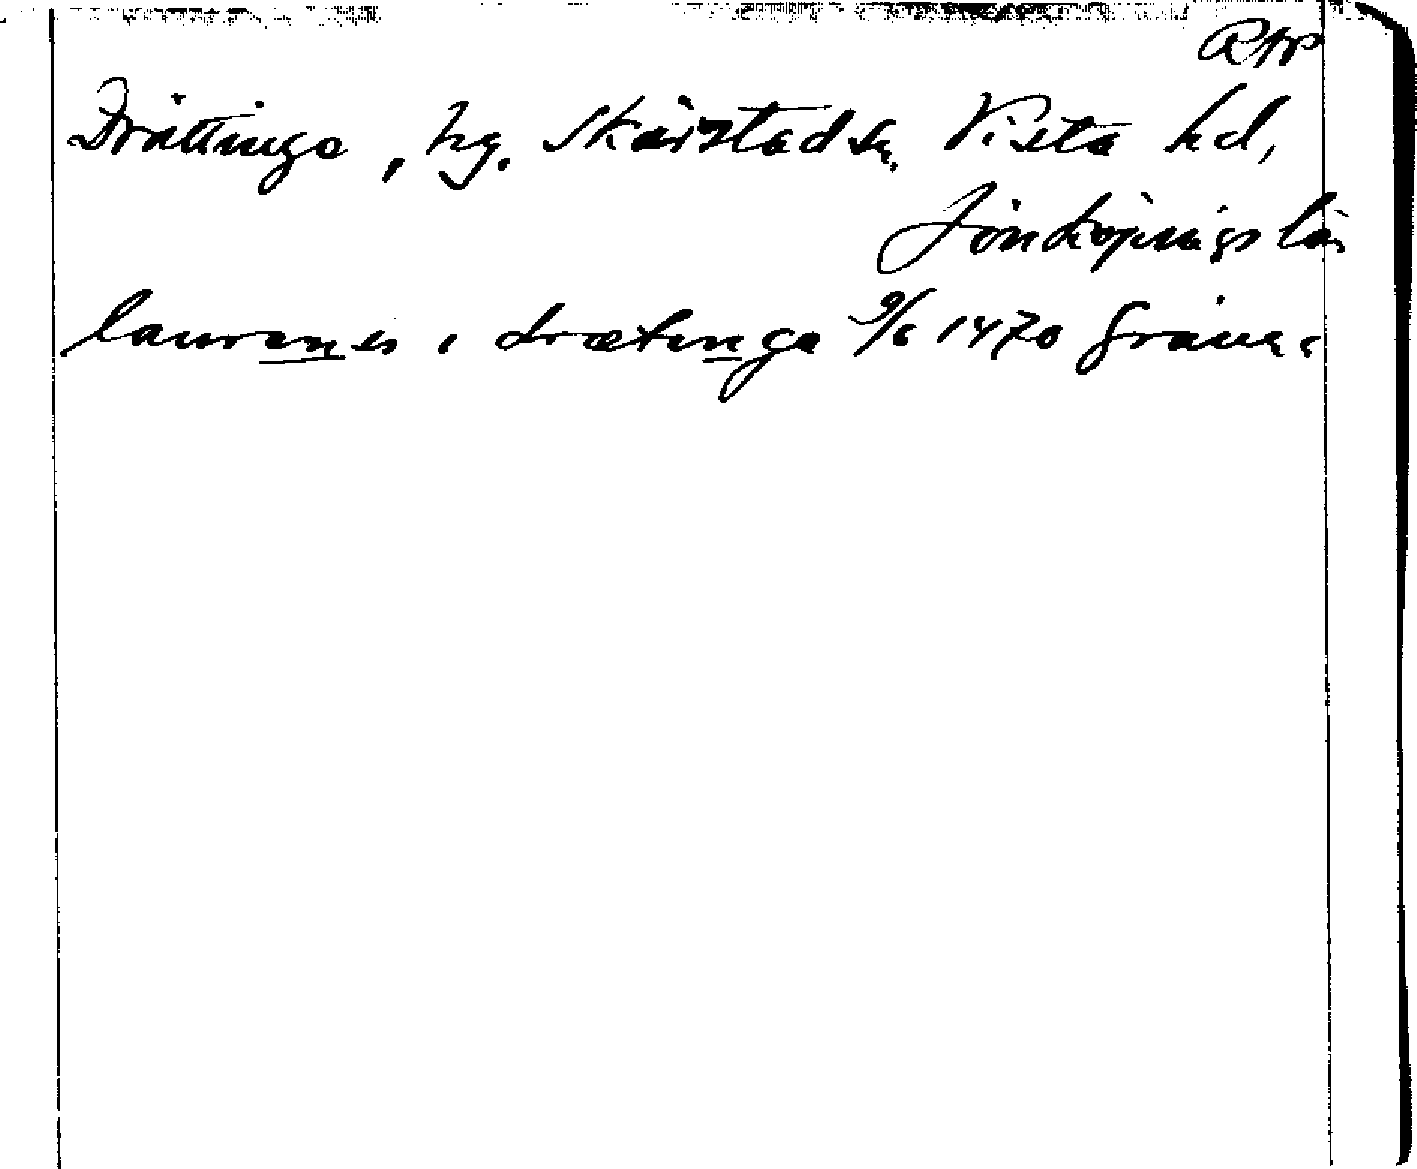 RAP
Drättinge, hg. Skärstad sn, Vista hd,
Jönköpings län
laurenes i drætinga 9/6 1470 Gränna